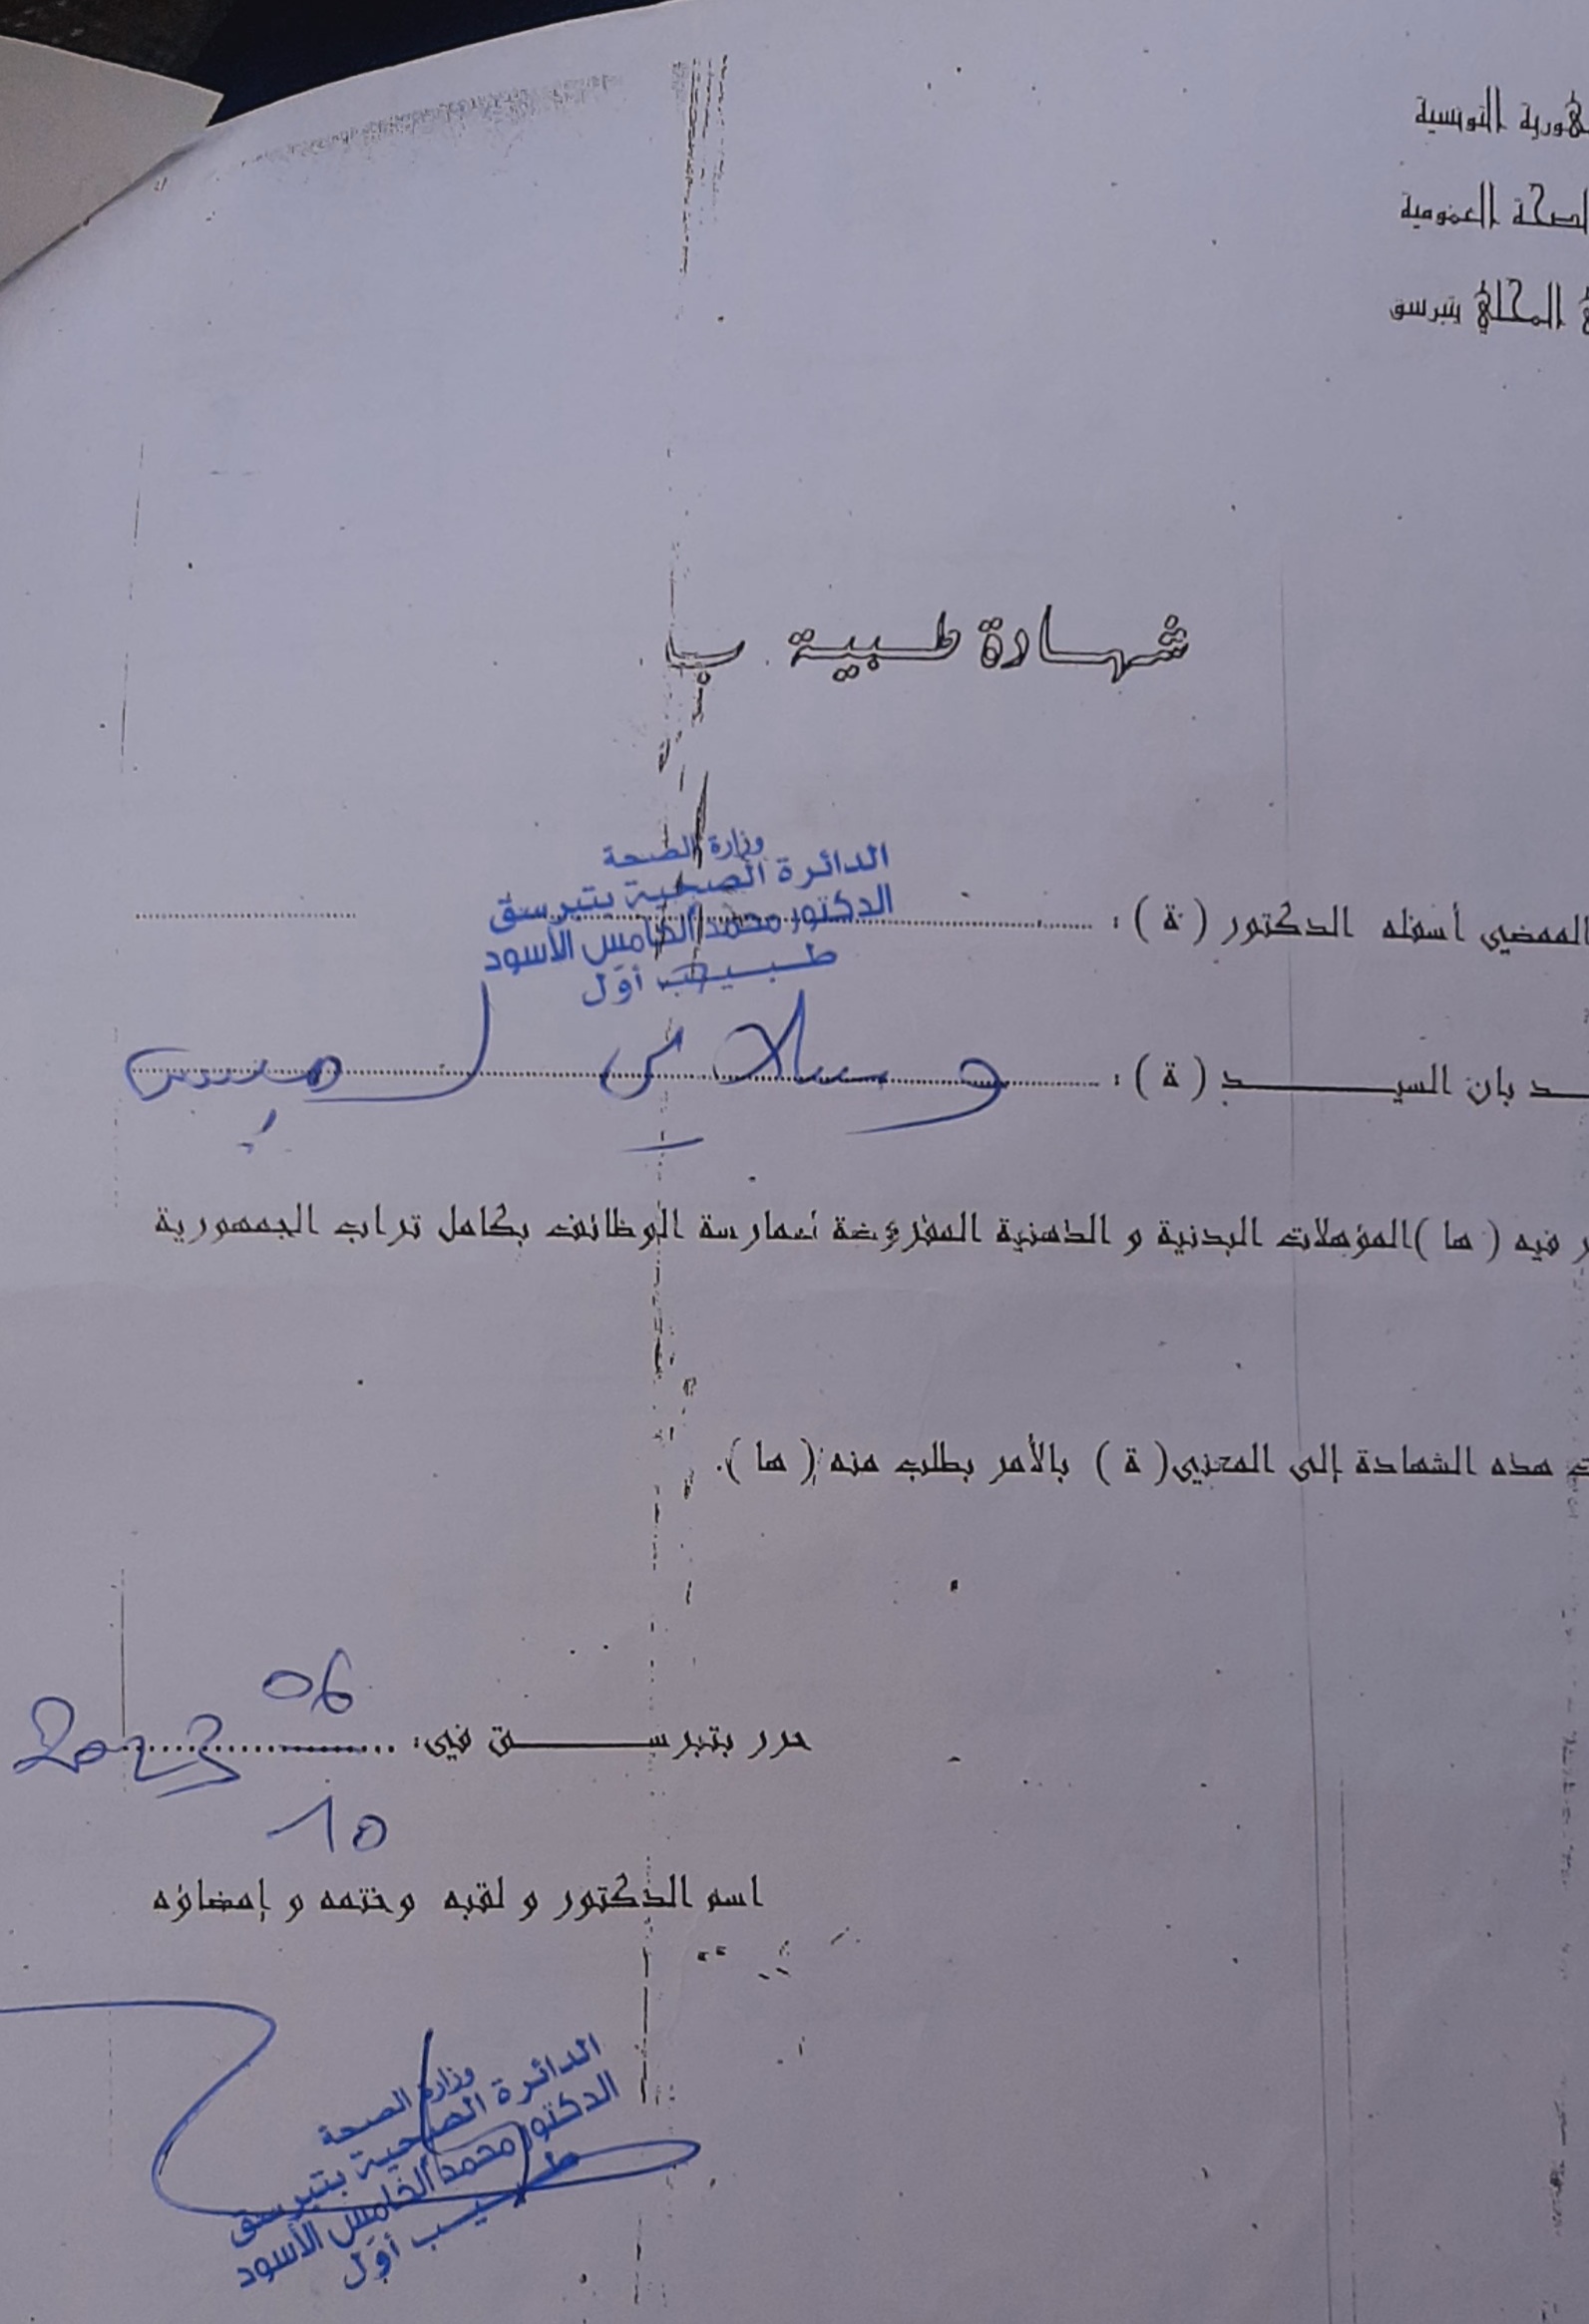 هورية التونسية
لصحة العمومية
المحلي بتبرسق
شهادة طبية ب
وزارة الصحة
الدائرة الصحية بتبرسق
الدكتور محمد الخامس الأسود
طبيب أول
الممضي أسفله الدكتور ( ة ) :
د بان السيد ( ة ) :
ر فيه ( ها ) المؤهلات البدنية و الذهنية المفروضة لممارسة الوظائف بكامل تراب الجمهورية
ت هذه الشهادة إلى المعني ( ة ) بالأمر بطلب منه ( ها ).
06
حرر بتبرسق في: 2023
10
اسم الدكتور و لقبه وختمه و إمضاؤه
وزارة الصحة
الدائرة الصحية بتبرسق
الدكتور محمد الخامس الأسود
طبيب أول